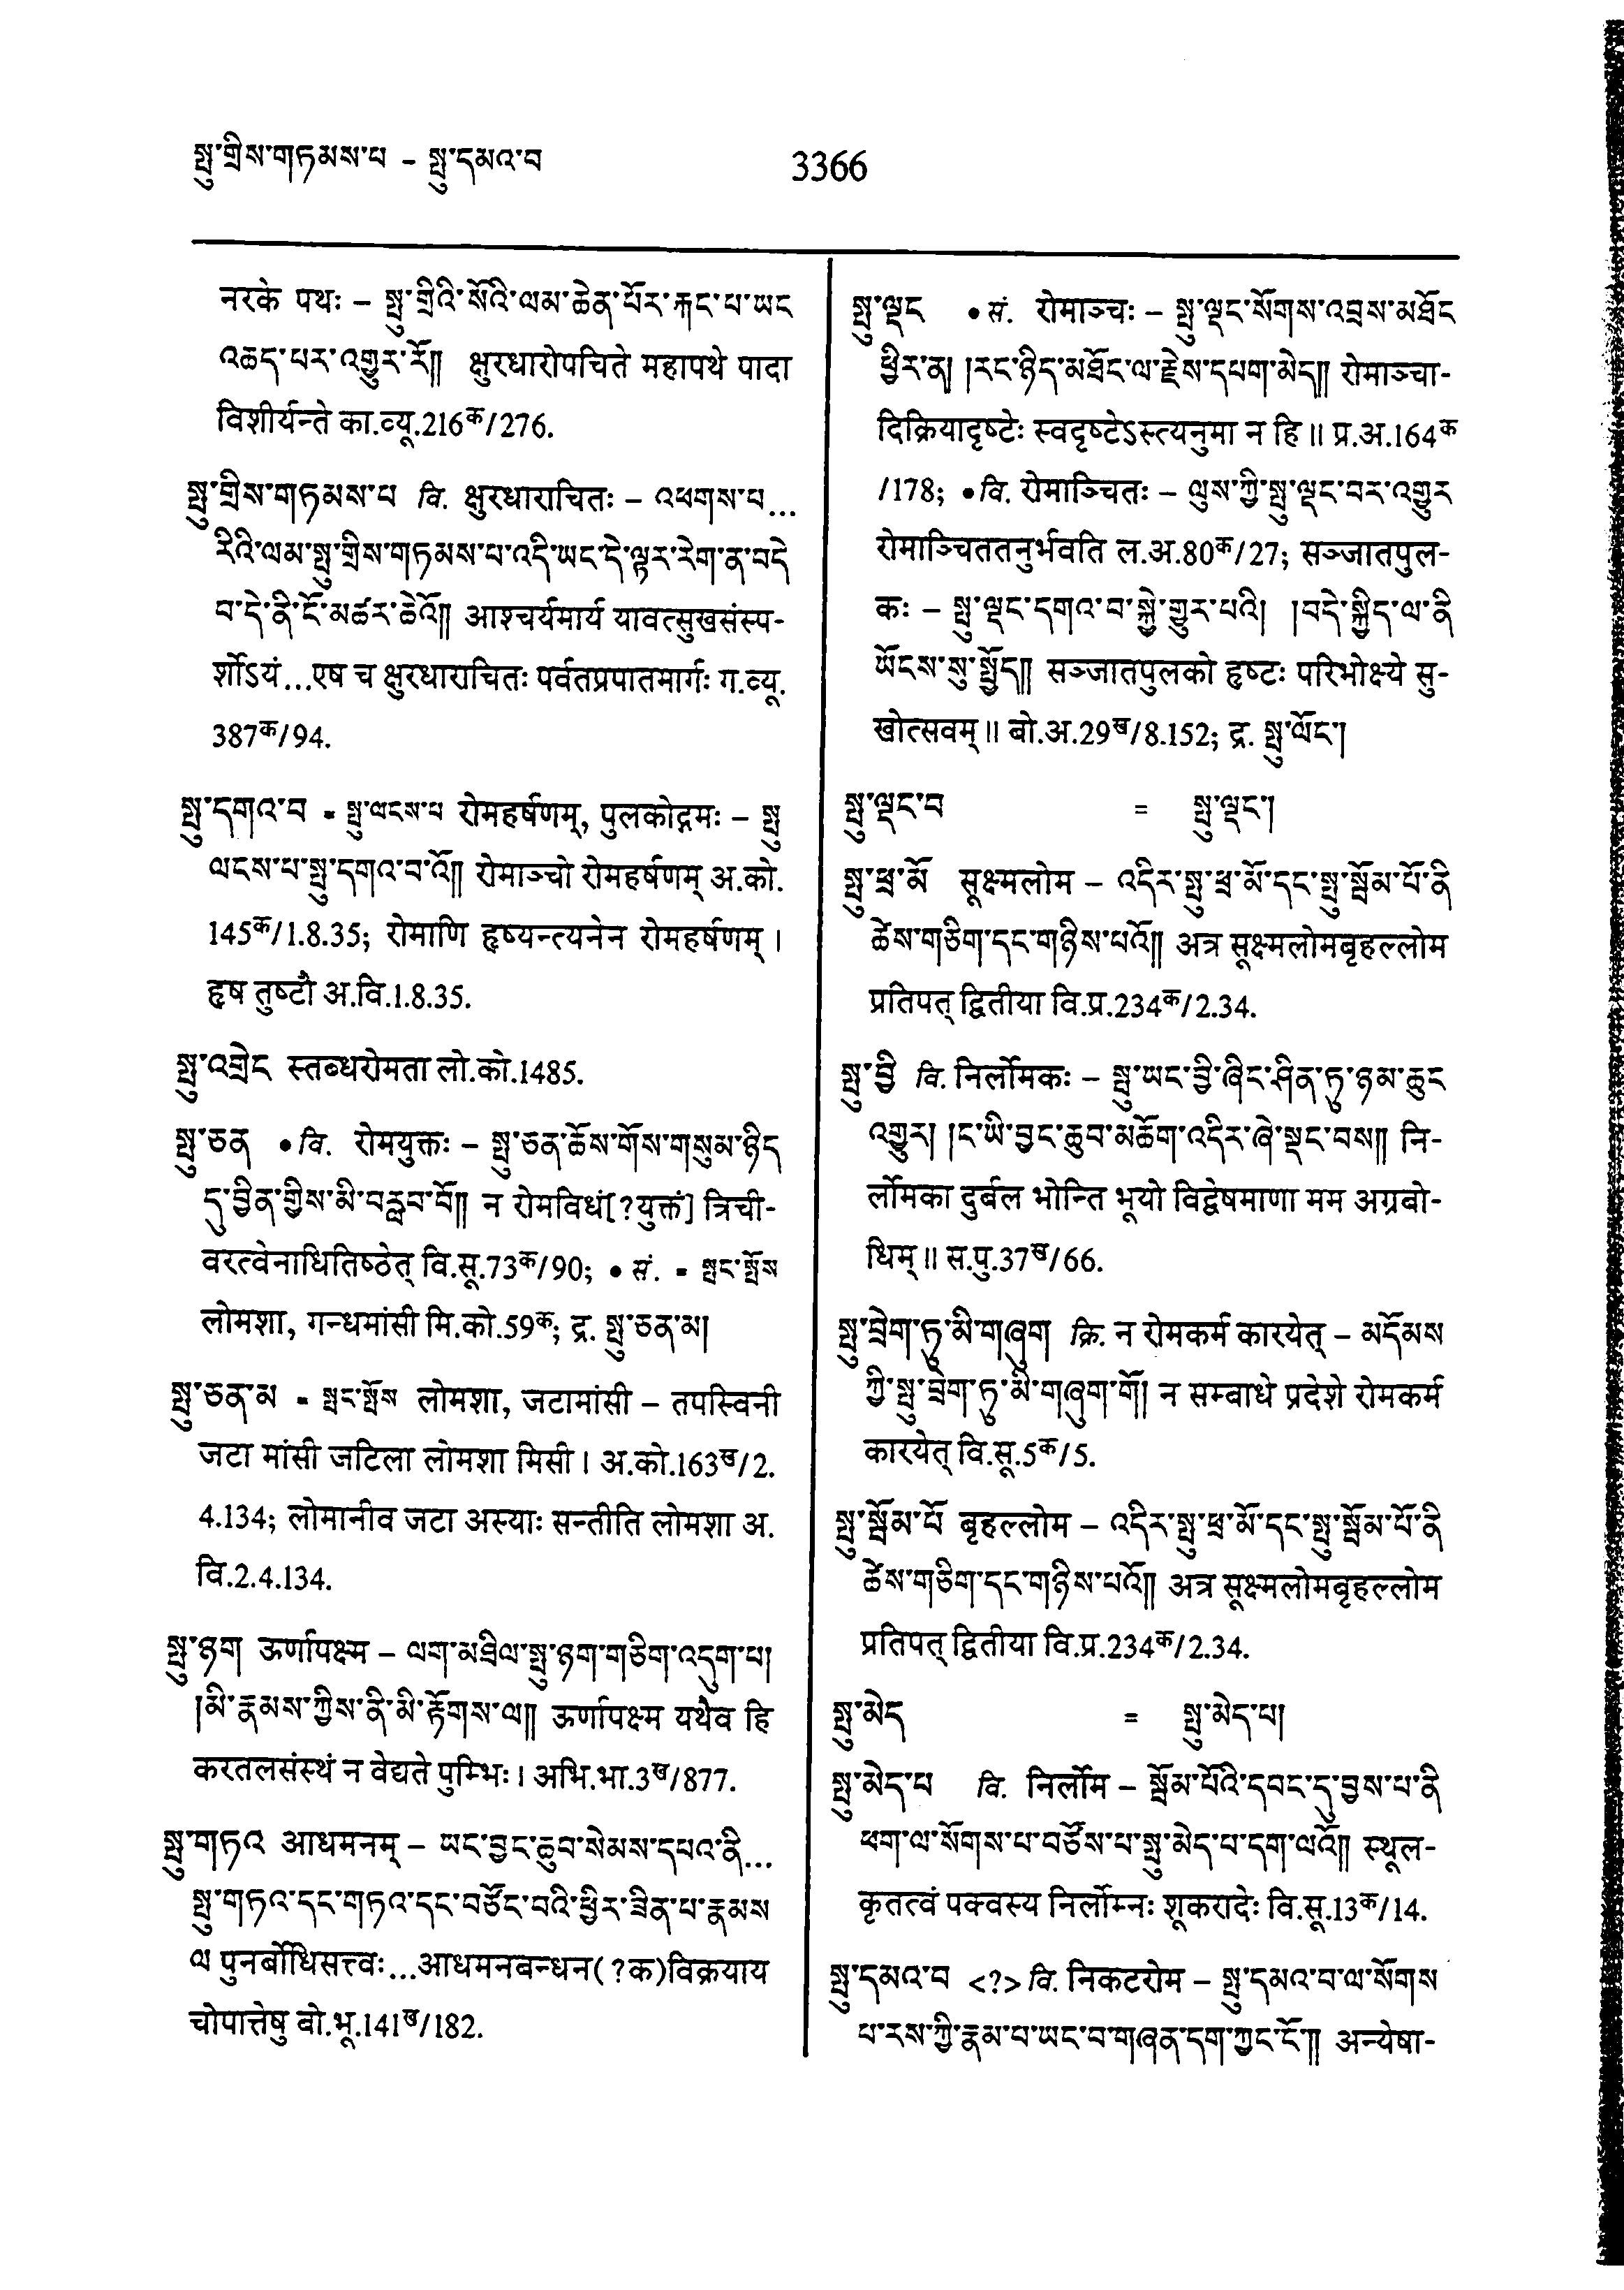 སྤུ་གྲིས་གཏམས་པ – སྤུ་དམའ་བ
3366
नरके पथः – སྤུ་གྲིའི་སོའི་ལམ་ཆེན་པོར་རྐང་པ་ཡང
འཆད་པར་འགྱུར་རོ༎ क्षुरधारोपचिते महापथे पादा
विशीर्यन्ते का.व्यू.216क/276.
སྤུ་གྲིས་གཏམས་པ वि. क्षुरधाराचितः – འཕགས་པ...
རིའི་ལམ་སྤུ་གྲིས་གཏམས་པ་འདི་ཡང་དེ་ལྟར་རེག་ན་བདེ
བ་དེ་ནི་ངོ་མཚར་ཆེའོ༎ आश्चर्यमार्य यावत्सुखसंस्प-
र्शोऽयं...एष च क्षुरधाराचितः पर्वतप्रपातमार्गः ग.व्यू.
387क/94.
སྤུ་དགའ་བ = སྤུ་ལངས་པ रोमहर्षणम्, पुलकोद्गमः – སྤུ
ལངས་པ་སྤུ་དགའ་བ་འོ༎ रोमाञ्चो रोमहर्षणम् अ.को.
145क/1.8.35; रोमाणि हृष्यन्त्यनेन रोमहर्षणम् ।
हृष तुष्टौ अ.वि.1.8.35.
སྤུ་འགྲེང स्तब्धरोमता लो.को.1485.
སྤུ་ཅན • वि. रोमयुक्तः – སྤུ་ཅན་ཆོས་གོས་གསུམ་ཉིད
དུ་བྱིན་གྱིས་མི་བརླབ་བོ༎ न रोमविधं[?युक्तं] त्रिची-
वरत्वेनाधितिष्ठेत् वि.सू.73क/90; • सं. = སྤང་སྤོས
लोमशा, गन्धमांसी मि.को.59क; द्र. སྤུ་ཅན་མ།
སྤུ་ཅན་མ = སྤང་སྤོས लोमशा, जटामांसी – तपस्विनी
जटा मांसी जटिला लोमशा मिसी । अ.को.163ख/2.
4.134; लोमानीव जटा अस्याः सन्तीति लोमशा अ.
वि.2.4.134.
སྤུ་ཉག ऊर्णापक्ष्म – ལག་མཐིལ་སྤུ་ཉག་གཅིག་འདུག་པ།
།མི་རྣམས་ཀྱིས་ནི་མི་རྟོགས་ལ༎ ऊर्णापक्ष्म यथैव हि
करतलसंस्थं न वेद्यते पुम्भिः । अभि.भा.3ख/877.
སྤུ་གཏའ आधमनम् – ཡང་བྱང་ཆུབ་སེམས་དཔའ་ནི...
སྤུ་གཏའ་དང་གཏའ་དང་བཙོང་བའི་ཕྱིར་ཟིན་པ་རྣམས
ལ पुनर्बोधिसत्त्वः...आधमनबन्धन(?क)विक्रयाय
चोपात्तेषु बो.भू.141ख/182.
སྤུ་ལྡང • सं. रोमाञ्चः – སྤུ་ལྡང་སོགས་འབྲས་མཐོང
ཕྱིར་ན། །རང་ཉིད་མཐོང་ལ་རྗེས་དཔག་མེད༎ रोमाञ्चा-
दिक्रियादृष्टेः स्वदृष्टेऽस्त्यनुमा न हि ॥ प्र.अ.164क
/178; • वि. रोमाञ्चितः – ལུས་ཀྱི་སྤུ་ལྡང་བར་འགྱུར
रोमाञ्चिततनुर्भवति ल.अ.80क/27; सञ्जातपुल-
कः – སྤུ་ལྡང་དགའ་བ་སྐྱེ་གྱུར་པའི། །བདེ་སྐྱིད་ལ་ནི
ཡོངས་སུ་སྤྱོད༎ सञ्जातपुलको हृष्टः परिभोक्ष्ये सु-
खोत्सवम् ॥ बो.अ.29ख/8.152; द्र. སྤུ་ལོང་།
སྤུ་ལྡང་བ = སྤུ་ལྡང་།
སྤུ་ཕྲ་མོ सूक्ष्मलोम – འདིར་སྤུ་ཕྲ་མོ་དང་སྤུ་སྦོམ་པོ་ནི
ཚེས་གཅིག་དང་གཉིས་པའོ༎ अत्र सूक्ष्मलोमबृहल्लोम
प्रतिपत् द्वितीया वि.प्र.234क/2.34.
སྤུ་བྱི वि. निर्लोमकः – སྤུ་ཡང་བྱི་ཞིང་ཤིན་ཏུ་ཉམ་ཆུང
འགྱུར། །ང་ཡི་བྱང་ཆུབ་མཆོག་འདིར་ཞེ་སྡང་བས༎ नि-
र्लोमका दुर्बल भोन्ति भूयो विद्वेषमाणा मम अग्रबो-
धिम् ॥ स.पु.37ख/66.
སྤུ་བྲེག་ཏུ་མི་གཞུག क्रि. न रोमकर्म कारयेत् – མདོམས
ཀྱི་སྤུ་བྲེག་ཏུ་མི་གཞུག་གོ། न सम्बाधे प्रदेशे रोमकर्म
कारयेत् वि.सू.5क/5.
སྤུ་སྦོམ་པོ बृहल्लोम – འདིར་སྤུ་ཕྲ་མོ་དང་སྤུ་སྦོམ་པོ་ནི
ཚེས་གཅིག་དང་གཉིས་པའོ༎ अत्र सूक्ष्मलोमबृहल्लोम
प्रतिपत् द्वितीया वि.प्र.234क/2.34.
སྤུ་མེད = སྤུ་མེད་པ།
སྤུ་མེད་པ वि. निर्लोम – སྦོམ་པོའི་དབང་དུ་བྱས་པ་ནི
ཕག་ལ་སོགས་པ་བཙོས་པ་སྤུ་མེད་པ་དག་ལའོ༎ स्थूल-
कृतत्वं पक्वस्य निर्लोम्नः शूकरादेः वि.सू.13क/14.
སྤུ་དམའ་བ <?> वि. निकटरोम – སྤུ་དམའ་བ་ལ་སོགས
པ་རས་ཀྱི་རྣམ་པ་ཡང་བ་གཞན་དག་ཀྱང་ངོ་༎ अन्येषा-